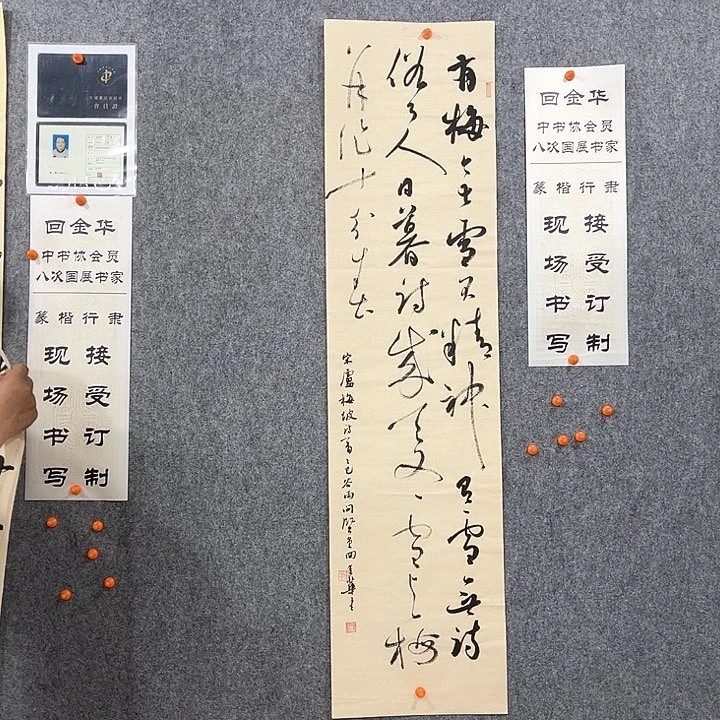 會員證
回金华
中书协会员
八次国展书家
篆楷行隶
接受订制
现场书写
有梅无雪不精神有雪無詩
俗了人日暮詩成天又雪与梅
並作十分春
宋盧梅坡詩
乙巳谷雨
回金華書
回金华
中书协会员
八次国展书家
篆楷行隶
接受订制
现场书写